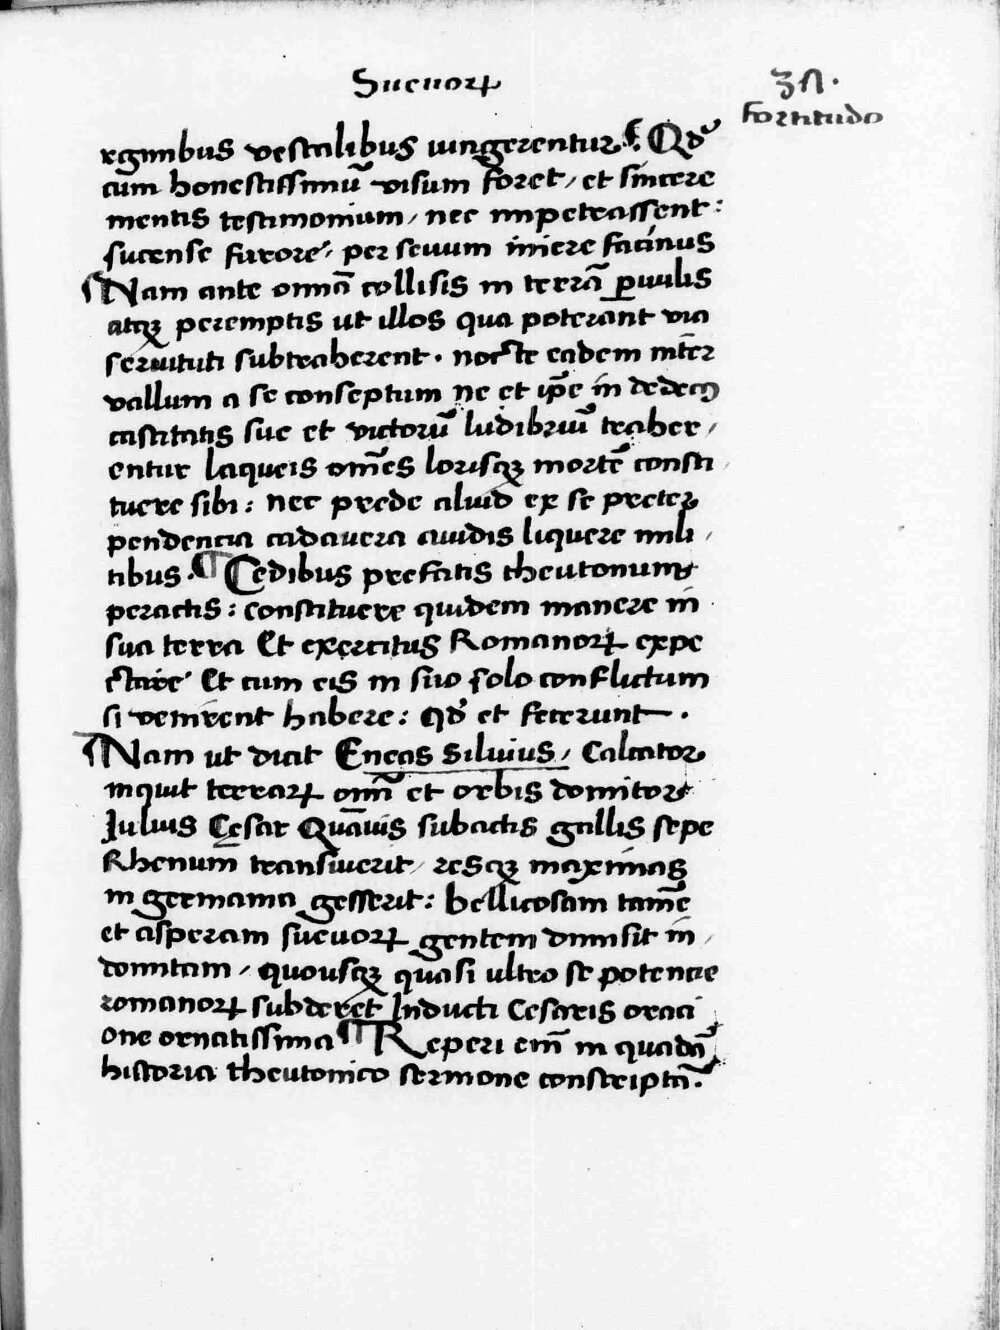 Sueuoꝝ
Fortitudo
rginibus vestalibus iungerentur: Qd'
cum honestissimū visum foret / et sincere
mentis testimonium / nec impetrassent:
sucense furore / per seuum iniere facinus
¶Nam ante omīa collisis in terrā ꝑuulis
atqꝫ peremptis ut illos qua poterant via
seruituti subtraherent. nocte eadem inter
vallum a se conseptum ne et ip̄e in dedecꝰ
castitatis sue et victorū ludibriū traher /
entur laqueis om̄es lorisqꝫ mortē consti /
tuere sibi: nec prede aliud ex se preter
pendencia cadauera auidis liquere mili /
tibus. ¶ Cedibus prefatis theutonum
peractis: constituere quidem manere in
sua terra Et exercitus Romanoꝝ expe
ctare Et cum eis in suo solo conflictum
si venirent habere: qd' et fecerunt.
¶Nam ut dicit Eneas Siluius / Calcator
inquit terraꝝ om̄i et orbis domitor
Julius Cesar Quāuis subactis gallis sepe
Rhenum transiuerit / resqꝫ maximas
in germania gesserit: bellicosam tamē
et asperam sueuoꝝ gentem dimisit in /
domitam / quousqꝫ quasi ultro se potencie
romanoꝝ subderet Inducti Cesaris oraci
one ornatissima ¶ Reperi em̄ in quadā
historia theutonico sermone conscriptā.